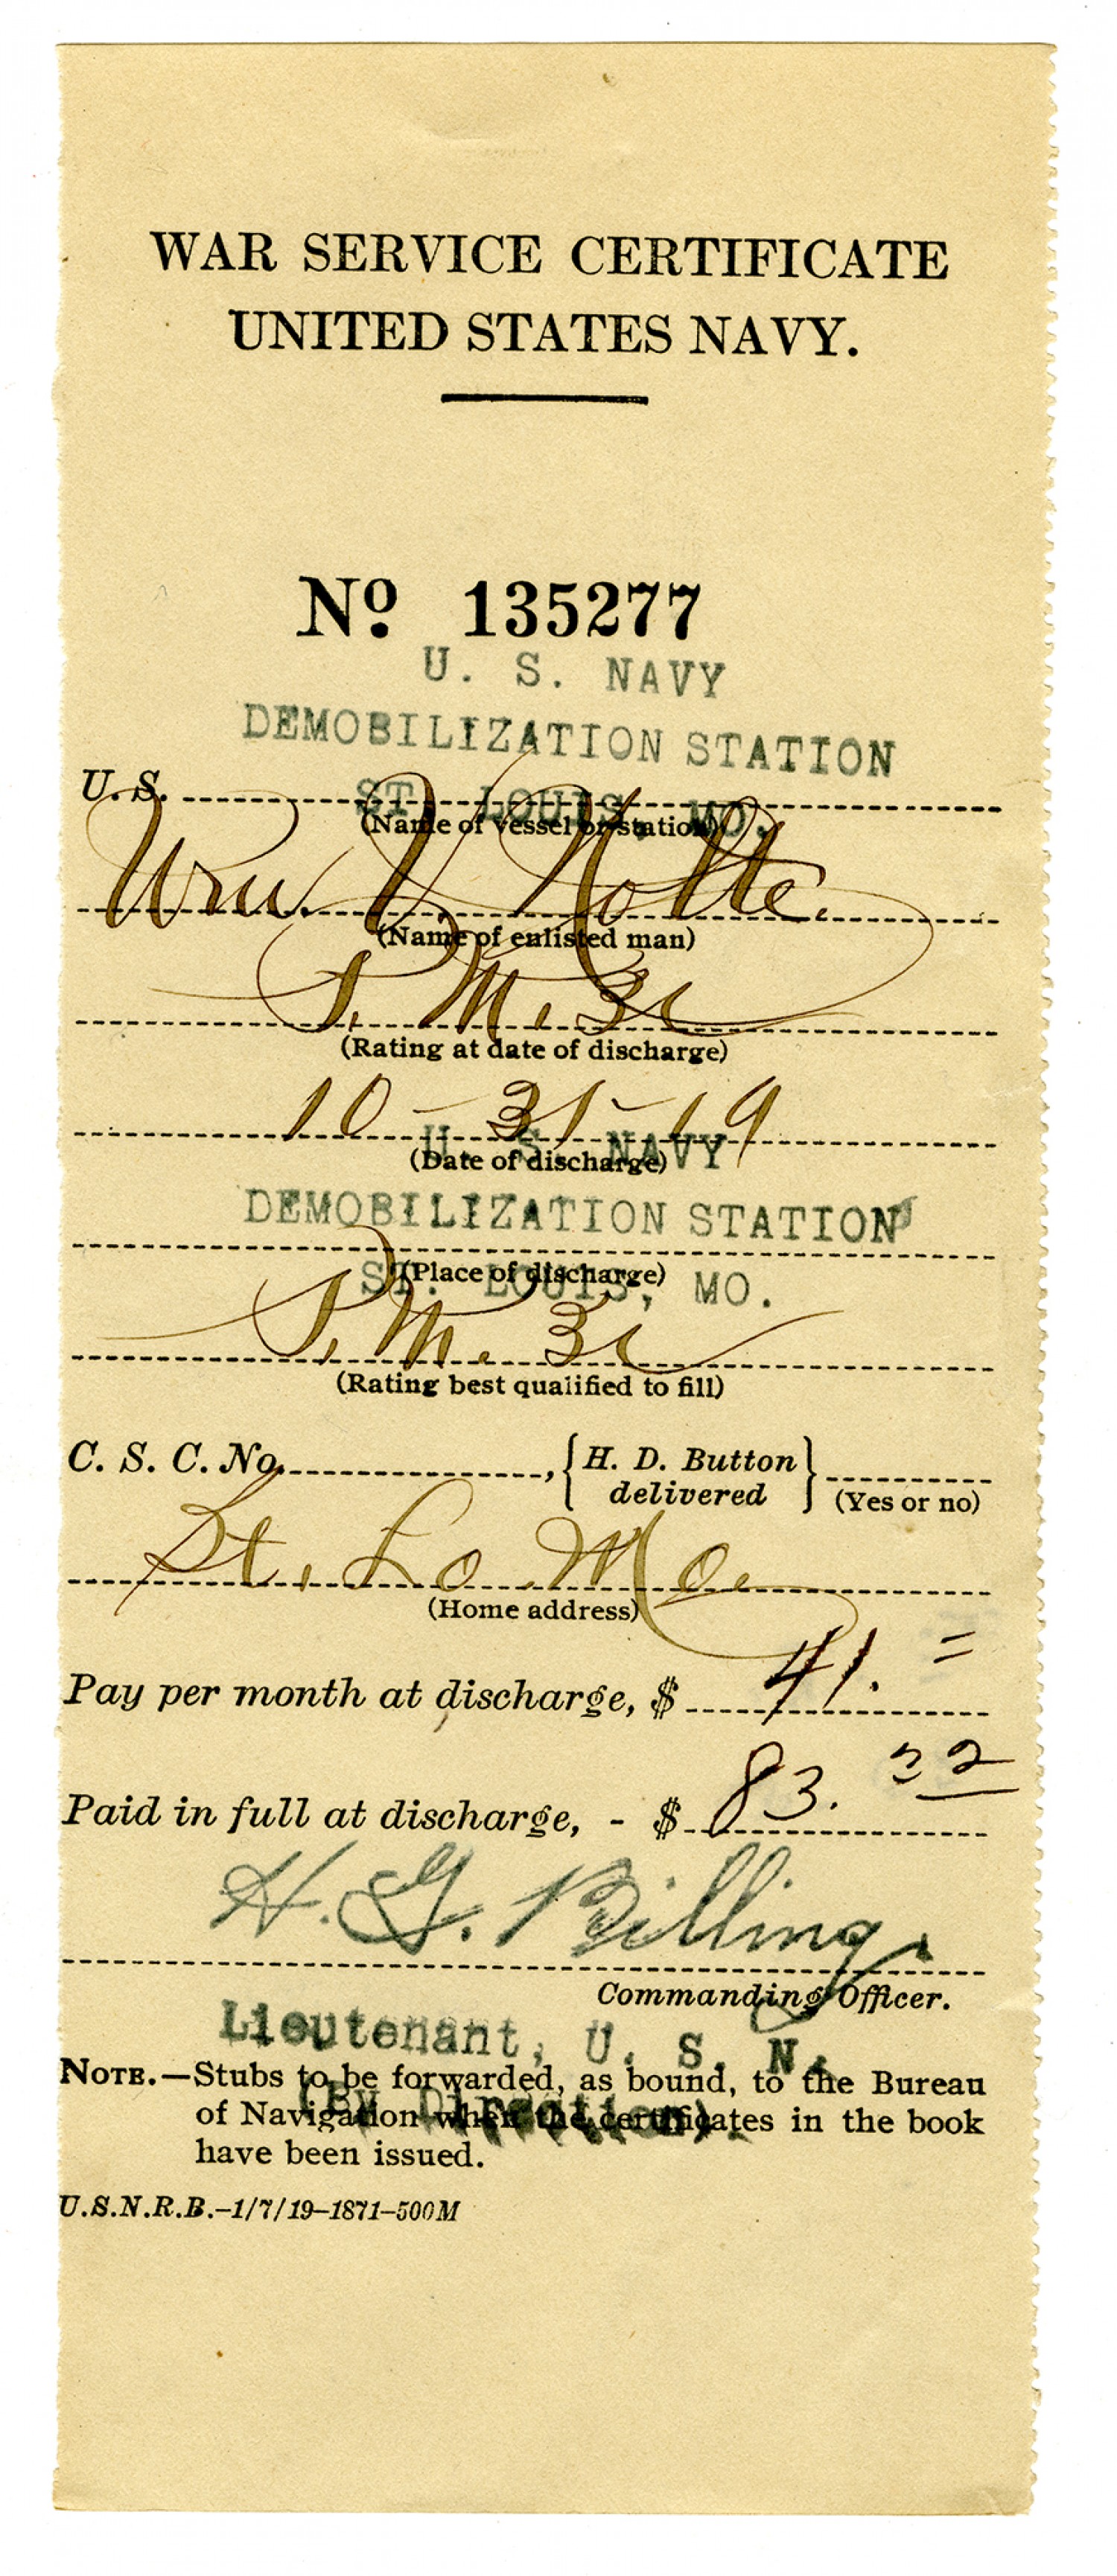 WAR SERVICE CERTIFICATE
UNITED STATES NAVY.
No 135277
U. S. NAVY
DEMOBILIZATION STATION
U. S. ST. LOUIS, MO.
(Name of vessel or station)
Wm. V. Nolte.
(Name of enlisted man)
P. M. 3c
(Rating at date of discharge)
10-31-19
U. S. NAVY
(Date of discharge)
DEMOBILIZATION STATION
(Place of discharge)
ST. LOUIS, MO.
P. M. 3c
(Rating best qualified to fill)
C. S. C. No. , { H. D. Button delivered } (Yes or no)
St. Lo. Mo.
(Home address)
Pay per month at discharge, $ 41. =
Paid in full at discharge, - $ 83. 22
H. G. Billings
Commanding Officer.
Lieutenant, U. S. N.
(By Direction).
NOTE.—Stubs to be forwarded, as bound, to the Bureau
of Navigation when the certificates in the book
have been issued.
U.S.N.R.B.–1/7/19–1871–500M